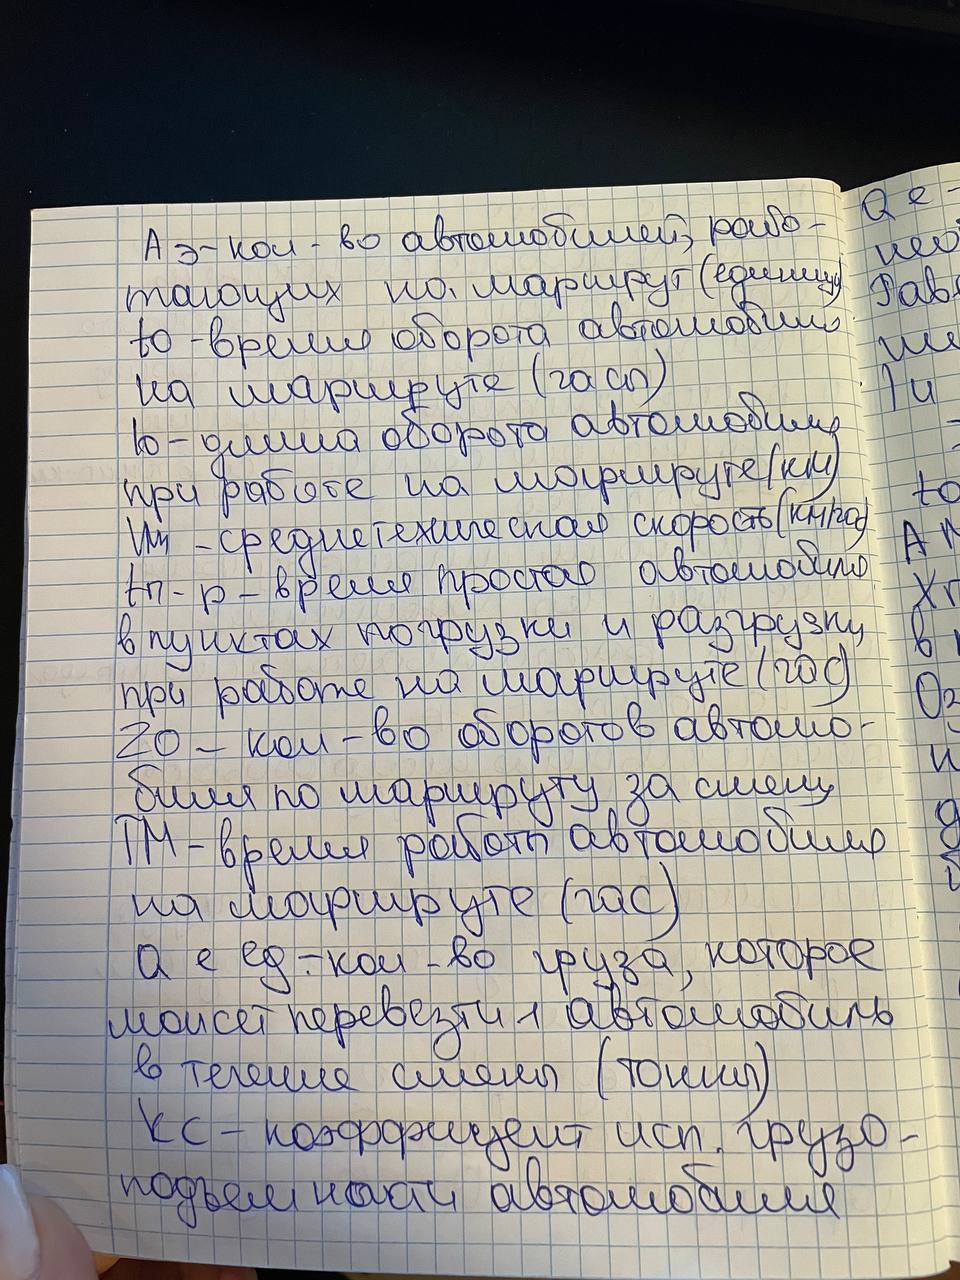 Аэ-кол-во автомобилей, рабо-
тающих на маршрут (единиц)
to -время оборота автомобиля
на маршруте (часы)
lo-длина оборота автомобиля
при работе на маршруте (км)
Vт -среднетехническая скорость (км/час)
tп-р-время простоя автомобиля
в пунктах погрузки и разгрузки,
при работе на маршруте (час)
Zо - кол-во оборотов автомо-
биля по маршруту за смену
ТМ-время работы автомобиля
на маршруте (час)
Q е ед-кол-во груза, которое
может перевезти 1 автомобиль
в течение смены (тонны)
Кс - коэффициент исп. грузо-
подъемности автомобиля
Q е -
Рав
lи
to
АМ
Хг
в